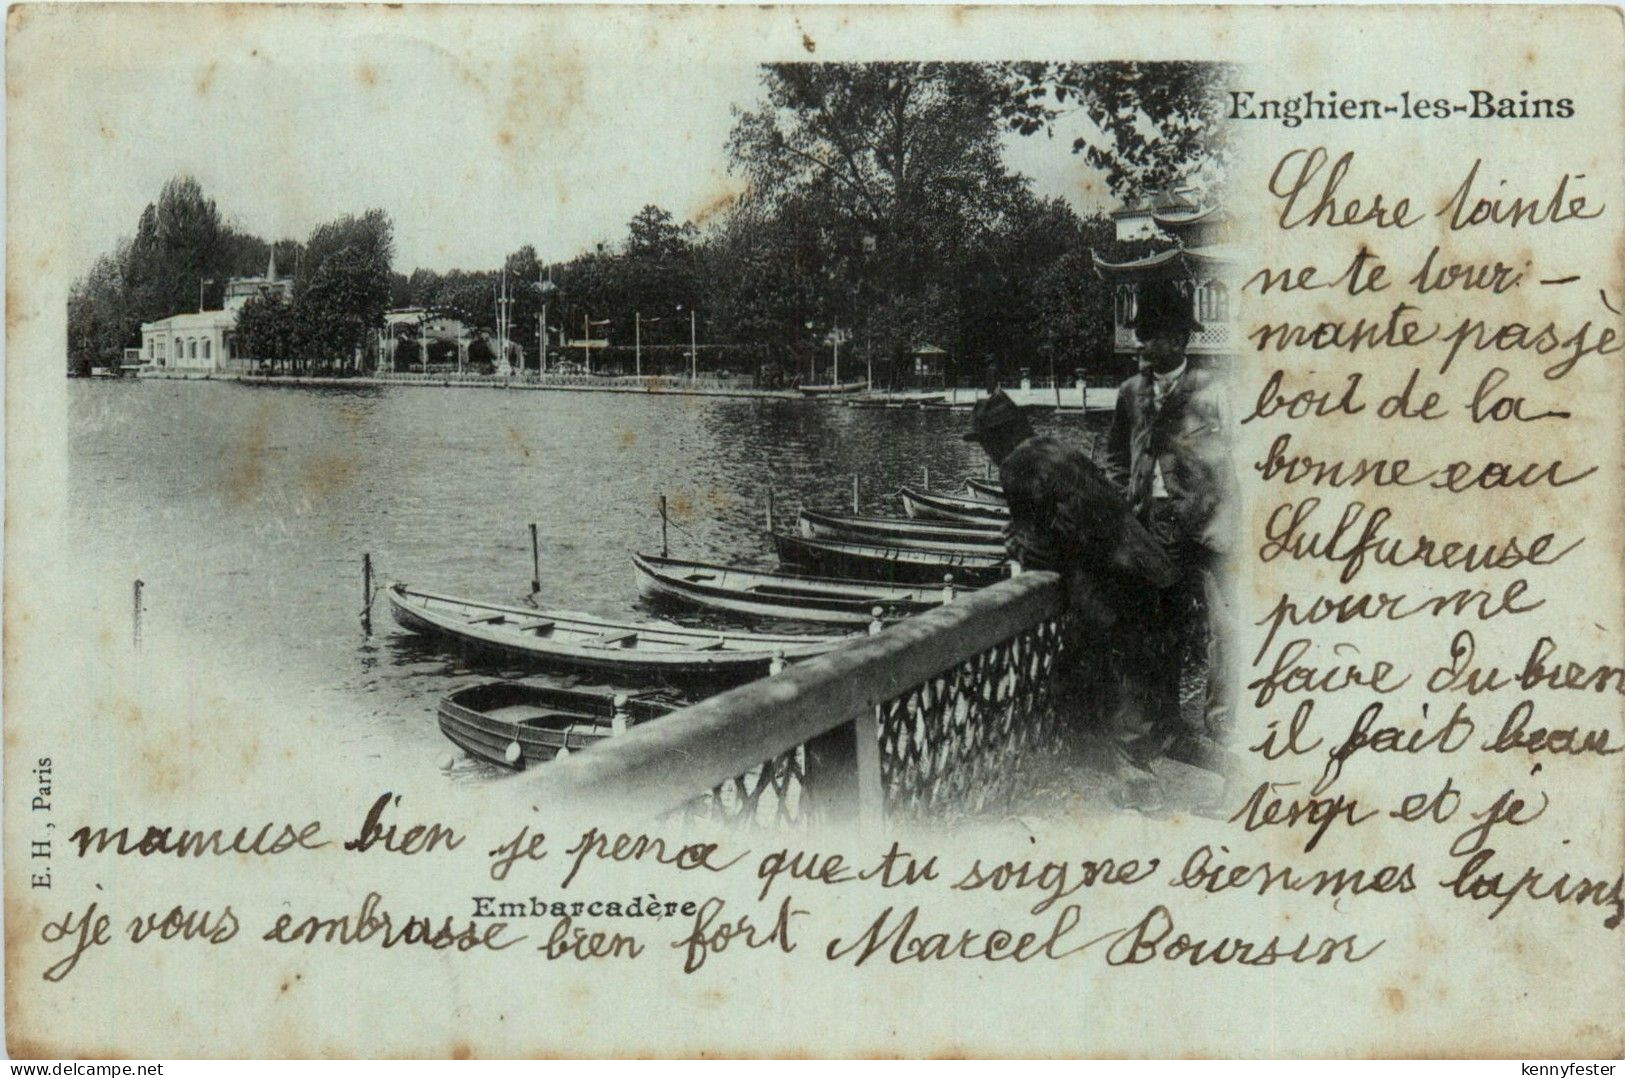 Enghien-les-Bains
Chere tainte
ne te tour-
mante pas je
boit de la
bonne eau
Sulfureuse
pour me
faire Du bien
il fait beau
temp et je
mamuse bien je pense que tu soigne bien mes lapins
Embarcadère
& je vous embrasse bien fort Marcel Boursin
E. H., Paris
delcampe.net
kennyfester